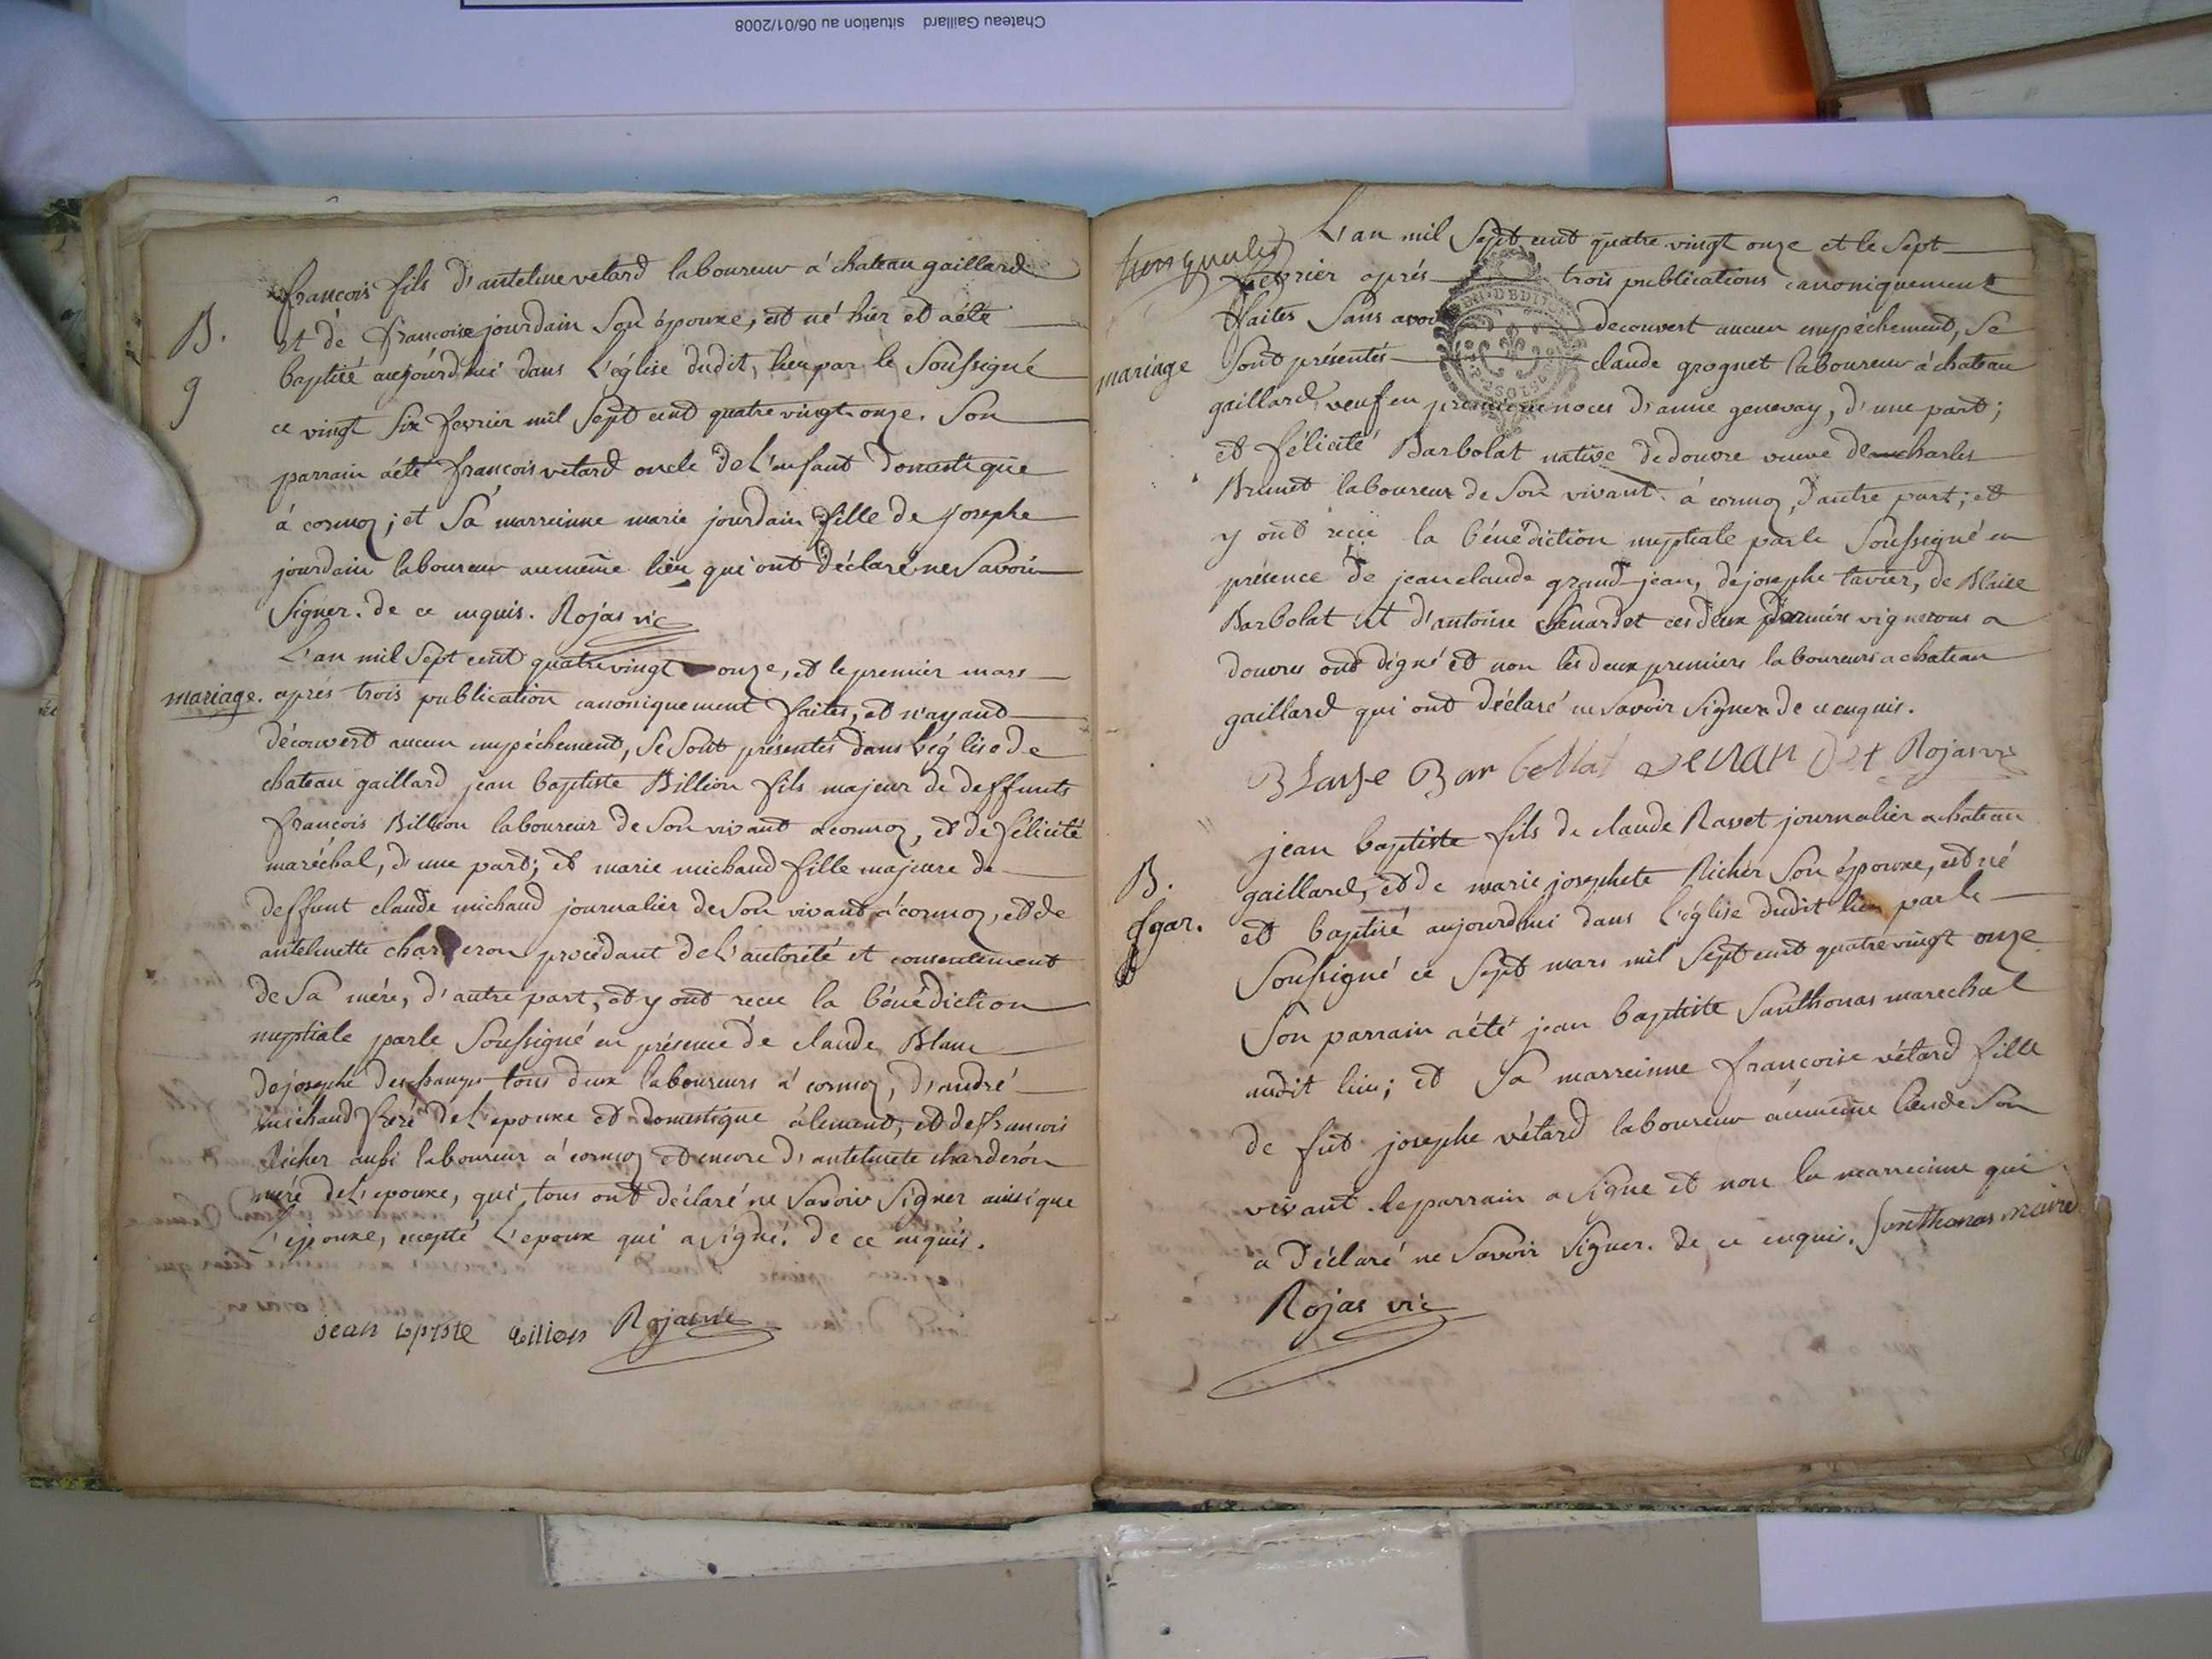 Chateau Gaillard situation au 06/01/2008
B.
g
françois fils d'antelme vétard laboureur à chateau gaillard
et de françoise jourdain son épouxe, est né hier et a été
baptisé aujourd'hui dans l'église dudit lieu par le soussigné
ce vingt six fevrier mil sept cent quatre vingt onze. Son
parrain a été françois vétard oncle de l'enfant domestique
à cormoz; et sa marreinne marie jourdain fille de josephe
jourdain laboureur au même lieu qui ont déclaré ne savoir
signer. de ce enquis. Rojas vic
mariage.
L'an mil sept cent quatre vingt onze, et le premier mars
aprés trois publication canoniquement faites, et n'ayant
découvert aucun empéchement, se sont présentés dans l'église de
chateau gaillard jean baptiste Billion fils majeur de deffunts
françois Billion laboureur de son vivant a cormoz, et de félicité
maréchal, d'une part; et marie michaud fille majeure de
deffunt claude michaud journalier de son vivant à cormoz, et de
antelmette charderon procédant de l'autorité et consentement
de sa mére, d'autre part, et y ont recue la bénédiction
nuptiale par le soussigné en présence de claude Blanc
de josephe deschamps tous deux laboureurs à cormoz, d'andré
michaud frére de l'epouxe et domestique à lement, et de françois
Richer aussi laboureur à cormoz et encore d'antelmete charderon
mére de l'epouxe, qui tous ont déclaré ne savoir signer ainsi que
l'épouxe, excepté l'epoux qui a signé. de ce enquis.
jean bptste billion Rojas vic
L'an mil sept cent quatre vingt onze et le sept
fevrier aprés trois publications canoniquement
mariage
faites sans avoir decouvert aucun empéchement, se
sont présentés claude grognet laboureur à chateau
gaillard veuf en premiere noces d'anne genevay, d'une part;
et félicité Barbolat native de douvre veuve de charles
Brunet laboureur de son vivant à cormoz, d'autre part; et
y ont reçue la bénédiction nuptiale par le soussigné en
présence de jean claude grand-jean, de josephe tavier, de Blaise
Barbolat et d'antoine chenardet ces deux derniers vignerons a
douvres ont signé et non les deux premiers laboureurs a chateau
gaillard qui ont déclaré ne savoir signer de ce enquis.
Blaise Barbollat Rojas vic
B.
jean baptiste fils de claude Ravet journalier a chateau
gaillard, et de marie josephete Richer son épouxe, est né
et baptisé aujourd'hui dans l'église dudit lieu par le
soussigné ce sept mars mil sept cent quatre vingt onze
Son parrain a été jean baptiste Santhonas marechal
audit lieu; et sa marreinne françoise vétard fille
de fut josephe vétard laboureur au même lieu de son
vivant. le parrain a signé et non la marreinne qui
a déclaré ne savoir signer. de ce enquis. Santhonas maire
Rojas vic